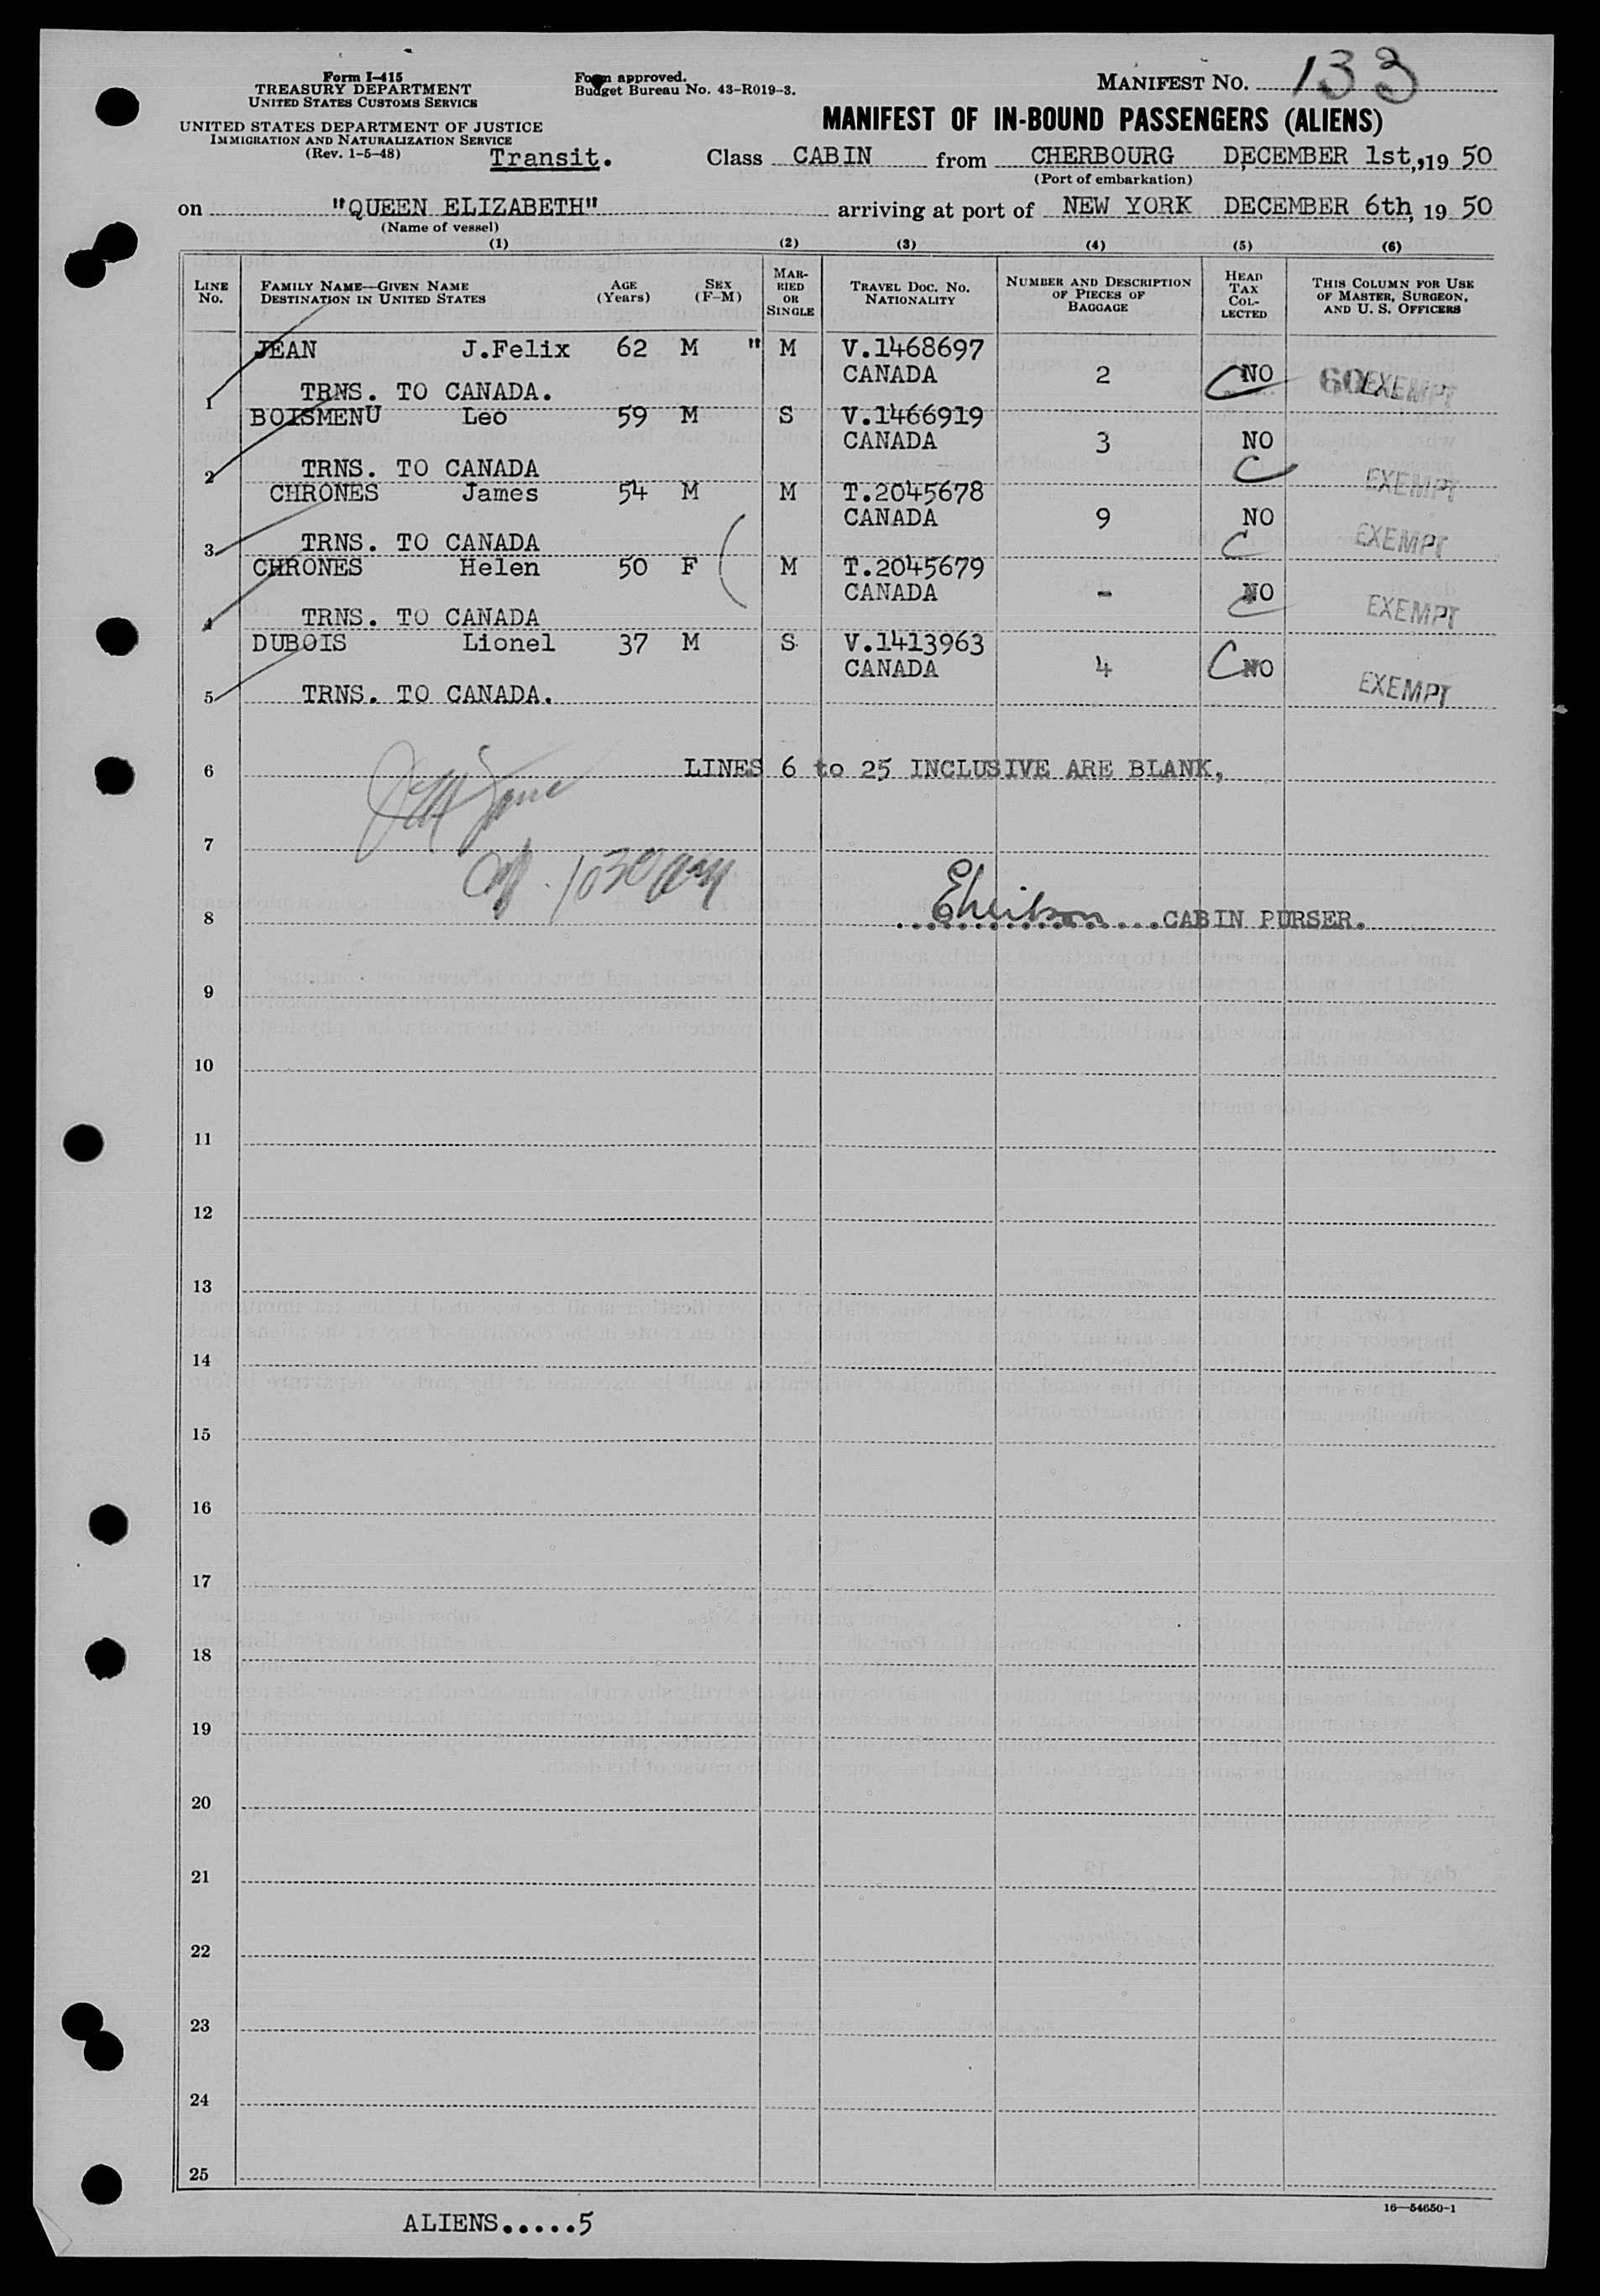 Form I-415
TREASURY DEPARTMENT
UNITED STATES CUSTOMS SERVICE
UNITED STATES DEPARTMENT OF JUSTICE
IMMIGRATION AND NATURALIZATION SERVICE
(Rev. 1-5-48)
Transit.
Form approved.
Budget Bureau No. 43-R019-3.
MANIFEST NO. 133
MANIFEST OF IN-BOUND PASSENGERS (ALIENS)
Class CABIN from CHERBOURG DECEMBER 1st., 19 50
(Port of embarkation)
on "QUEEN ELIZABETH" arriving at port of NEW YORK DECEMBER 6th, 19 50
(Name of vessel)
(1) (2) (3) (4) (5) (6)
LINE No. FAMILY NAME—GIVEN NAME DESTINATION IN UNITED STATES AGE (Years) SEX (F-M) MARRIED OR SINGLE TRAVEL DOC. NO. NATIONALITY NUMBER AND DESCRIPTION OF PIECES OF BAGGAGE HEAD TAX COLLECTED THIS COLUMN FOR USE OF MASTER, SURGEON, AND U. S. OFFICERS
JEAN J.Felix 62 M " M V.1468697
CANADA 2 NO EXEMPT
1 TRNS. TO CANADA.
BOISMENU Leo 59 M S V.1466919
CANADA 3 NO
2 TRNS. TO CANADA C EXEMPT
CHRONES James 54 M M T.2045678
CANADA 9 NO
3 TRNS. TO CANADA C EXEMPT
CHRONES Helen 50 F M T.2045679
CANADA - NO
4 TRNS. TO CANADA C EXEMPT
DUBOIS Lionel 37 M S V.1413963
CANADA 4 C NO
5 TRNS. TO CANADA. EXEMPT
6 LINES 6 to 25 INCLUSIVE ARE BLANK,
7
1030 am
8 CABIN PURSER.
9
10
11
12
13
14
15
16
17
18
19
20
21
22
23
24
25
16—54650-1
ALIENS.....5